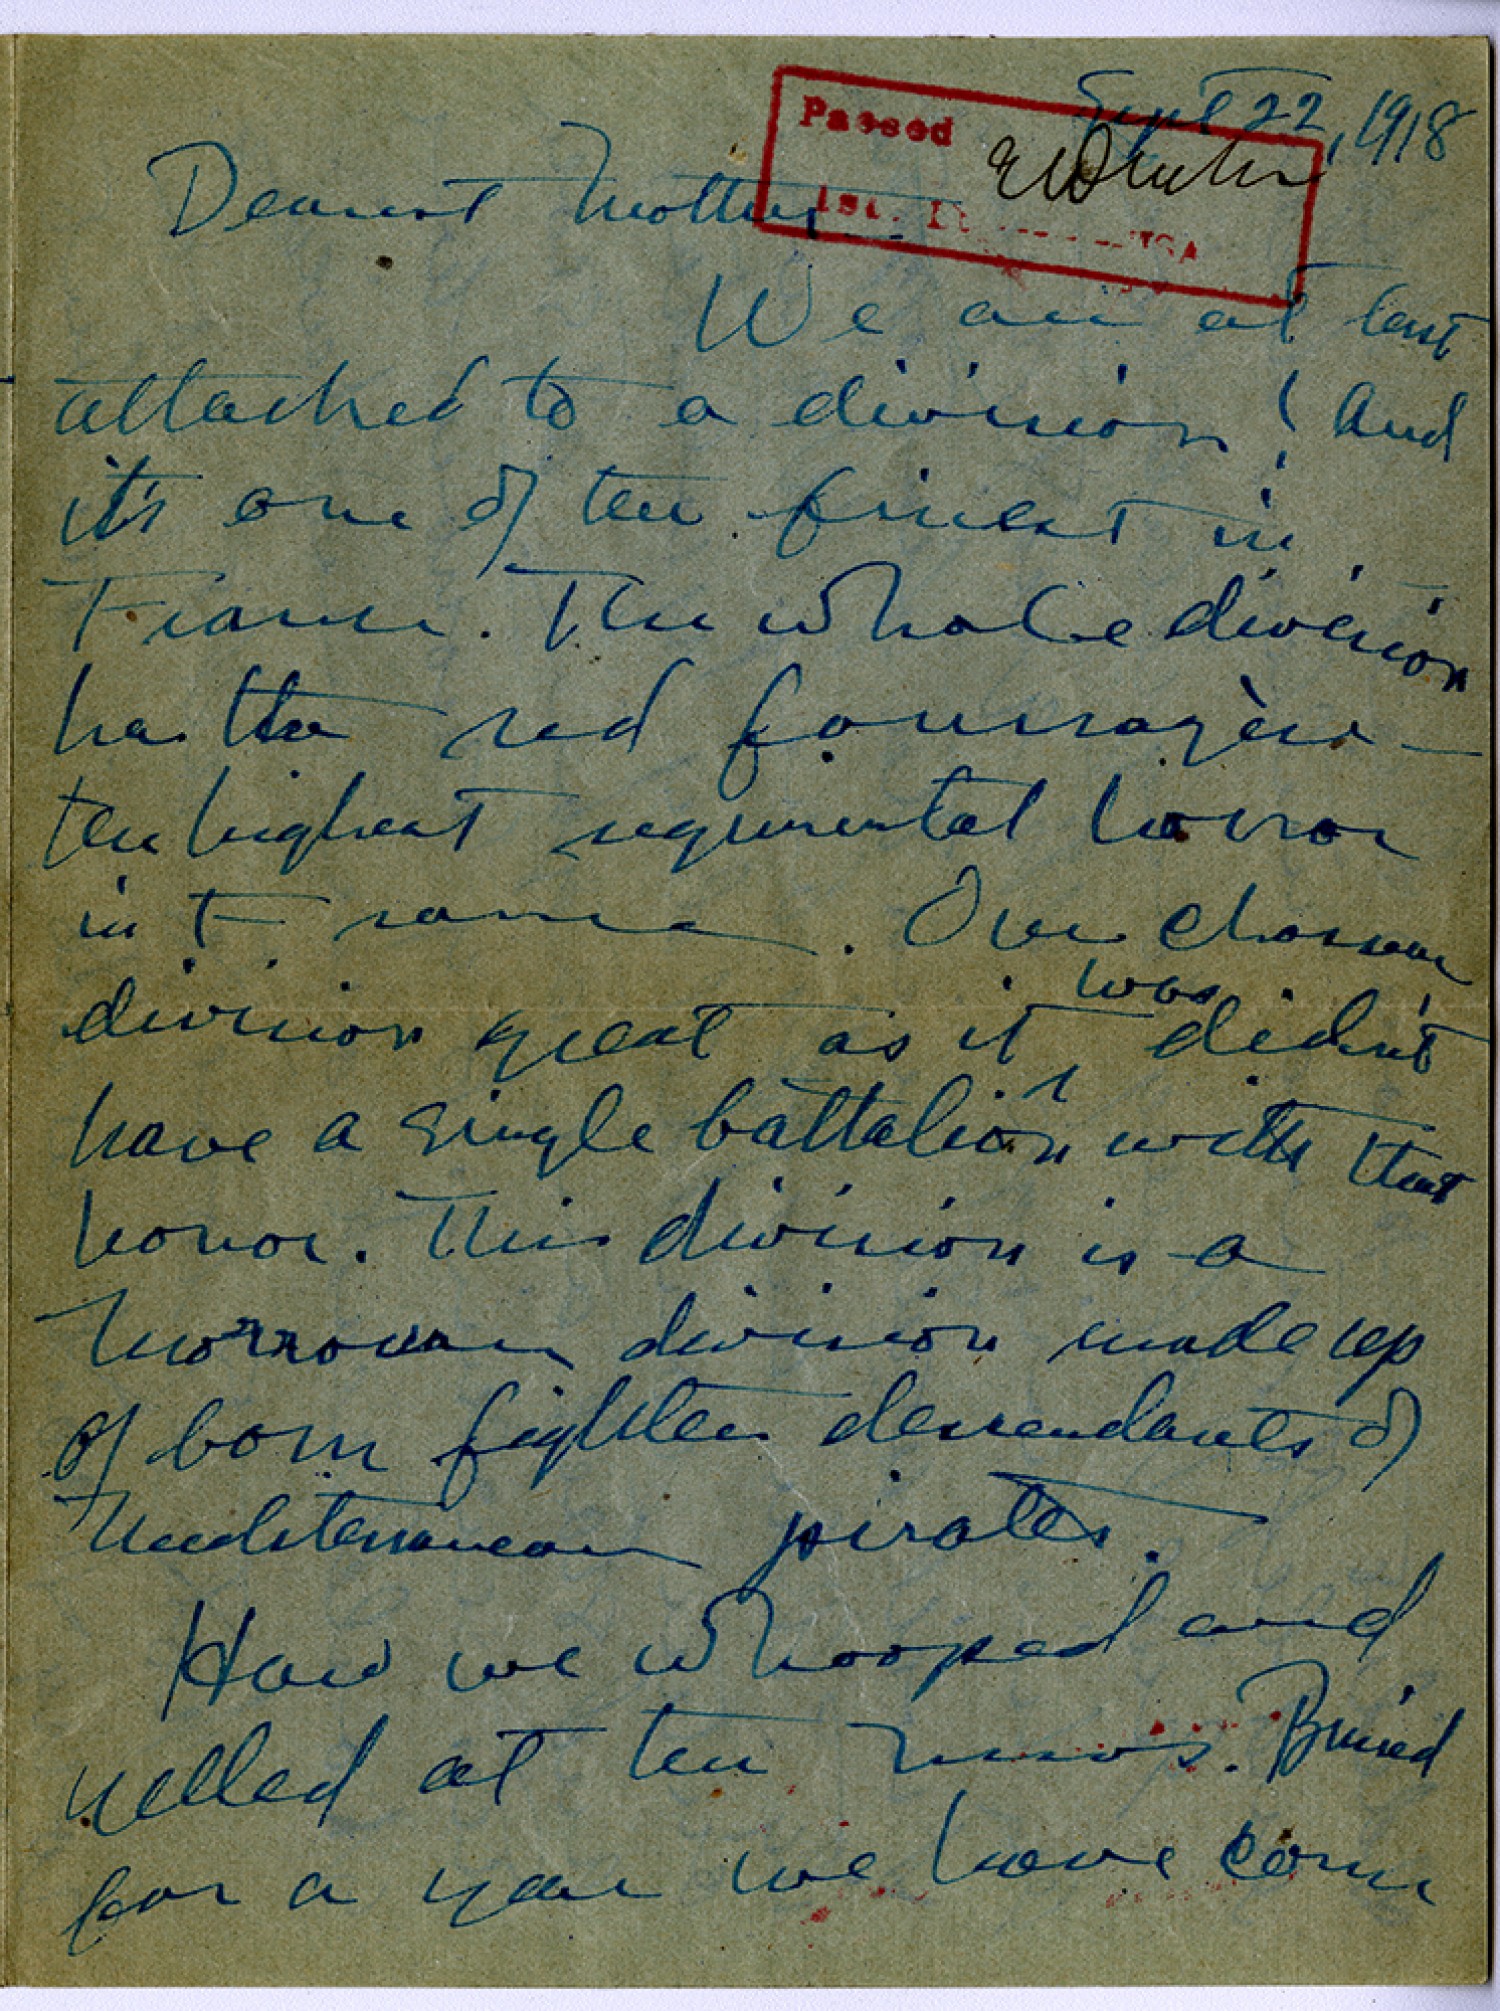 Sept 22, 1918
Passed
1st. Lt. ------USA
Dearest Mother,
We are at last
attached to a division! And
it's one of the finest in
France. The whole division
has the red fourragère –
the highest regimental honor
in France. Our chosen
division great as it was didn't
have a single battalion with that
honor. This division is a
Morrocan division made up
of born fighters descendants of
Mediterranean pirates.
How we whooped and
yelled at the news. Buried
for a year we have come